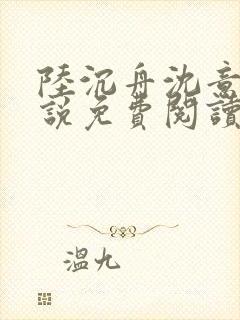 陸沉舟沈意
說免費閱讀
溫九